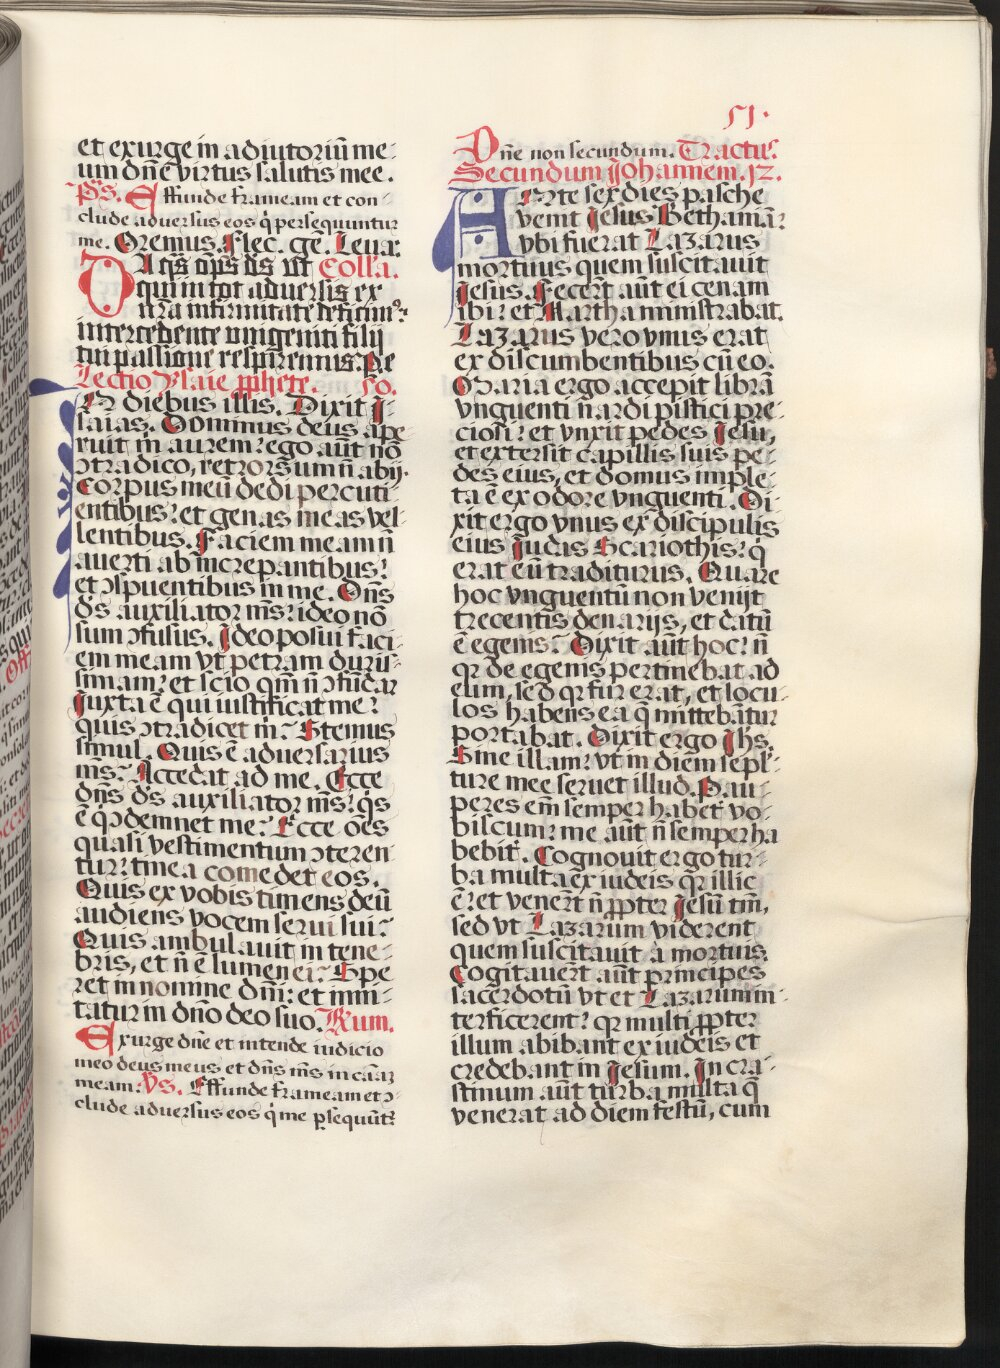 51.
et exurge in adiutoriū me-
um dn̄e virtus salutis mee.
ps. Effunde frameam et con-
clude adversus eos q̇ persequuntur
me. Oremus. Flec. gē. Levar.
DA qs̄ op̄s ds̄ ut Coll'a.
qui in tot adversis ex
nr̄a infirmitate deficim⁹:
intercedente unigeniti filij
tui passione respiremus. Pe
Lectio ysaie pp̄hete. 50.
IN diebus illis. Dixit J-
saias. Dominus deus ape
ruit m̄ aurem: ego aut̄ nō
ↄtradico, retrorsum n̄ abij.
Corpus meū dedi percuti-
entibus: et genas meas vel-
lentibus. Faciem meam n̄
averti ab increpantibus:
et ↄspuentibus in me. Dn̄s
ds̄ auxiliator ms̄: ideo nō
sum ↄfusus. Ideo posui faci-
em meam vt petram duris-
simam: et scio qm̄ n̄ ↄfūdar
Juxta ē qui iustificat me:
quis ↄtradicet m̄: Stemus
simul. Quis ē adversarius
ms̄: Accedat ad me. Ecce
dn̄s ds̄ auxiliator ms̄: q̇s
ē q̇ ↄdemnet me: Ecce oēs
quasi vestimentum ↄteren-
tur: tinea comedet eos.
Quis ex vobis timens deū
audiens vocem serui sui:
Quis ambulauit in tene-
bris, et n̄ ē lumen ei: Spe
ret in nomine dn̄i: et inni-
tatur in dn̄o deo suo. Rum.
Exurge dn̄e et intende iudicio
meo deus meus et dn̄s ms̄ in cāā
meam: Vs. Effunde frameam et ↄ-
clude adversus eos q̇ me p̱sequūt᷑
Dn̄e non secundum. Tractus.
Secundum Johannem. 12.
ANte sex dies pasche
venit Jesus Bethaniā:
vbi fuerat Lazarus
mortuus quem suscitauit
Jesus. Fecert̄ aut̄ ei cenam
ibi: et Martha ministrabat.
Lazarus vero vnus erat
ex discumbentibus cū eo.
Maria ergo accepit librā
vnguenti nardi pistici pre-
ciosi: et vnxit pedes Jesu,
et extersit capillis suis pe-
des eius, et domus imple-
ta ē ex odore vnguenti. Di-
xit ergo vnus ex discipulis
eius Judas Scariothis: q̇
erat eū traditurus. Quare
hoc vnguentū non venijt
trecentis denarijs, et datū
ē egenis: Dixit aut̄ hoc: n̄
qr̄ de egenis pertinebat ad
eum, sed qr̄ fur erat, et locu-
los habens ea q̄ mittebātur
portabat. Dixit ergo Jhs.
Sine illam: vt in diem sepl'-
ture mee seruet illud. Pau-
peres em̄ semper habet⁾ vo-
biscum: me aut̄ n̄ semper ha
bebit⁾. Cognouit ergo tur-
ba multa ex iudeis qr̄ illic
ē: et venert̄ n̄ pp̄ter Jesū tm̄,
sed vt Lazarum viderent
quem suscitauit a mortuis.
Cogitavert̄ aut̄ principes
sacerdotū vt et Lazarum in-
terficerent: qr̄ multi pp̄ter
illum abibant ex iudeis et
credebant in Jesum. In cra-
stinum aut̄ turba multa q̄
venerat ad diem festū, cum